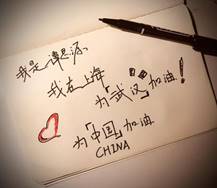 我是谭思源
我在上海
为「武汉」加油!
为「中国」加油
CHINA